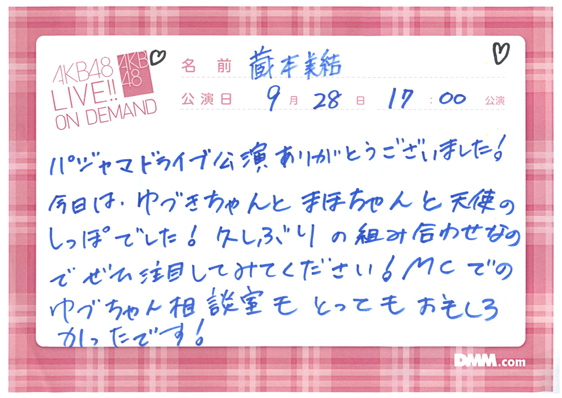 AKB48
LIVE!!
ON DEMAND
AKB
48
名前 蔵本美結
公演日 9月28日 17:00公演
パジャマドライブ公演ありがとうございました!
今日は、ゆづきちゃんとまほちゃんと天使の
しっぽでした!久しぶりの組み合わせなの
でぜひ注目してみてください!MCでの
ゆづちゃん相談室もとってもおもしろ
かったです!
DMM.com